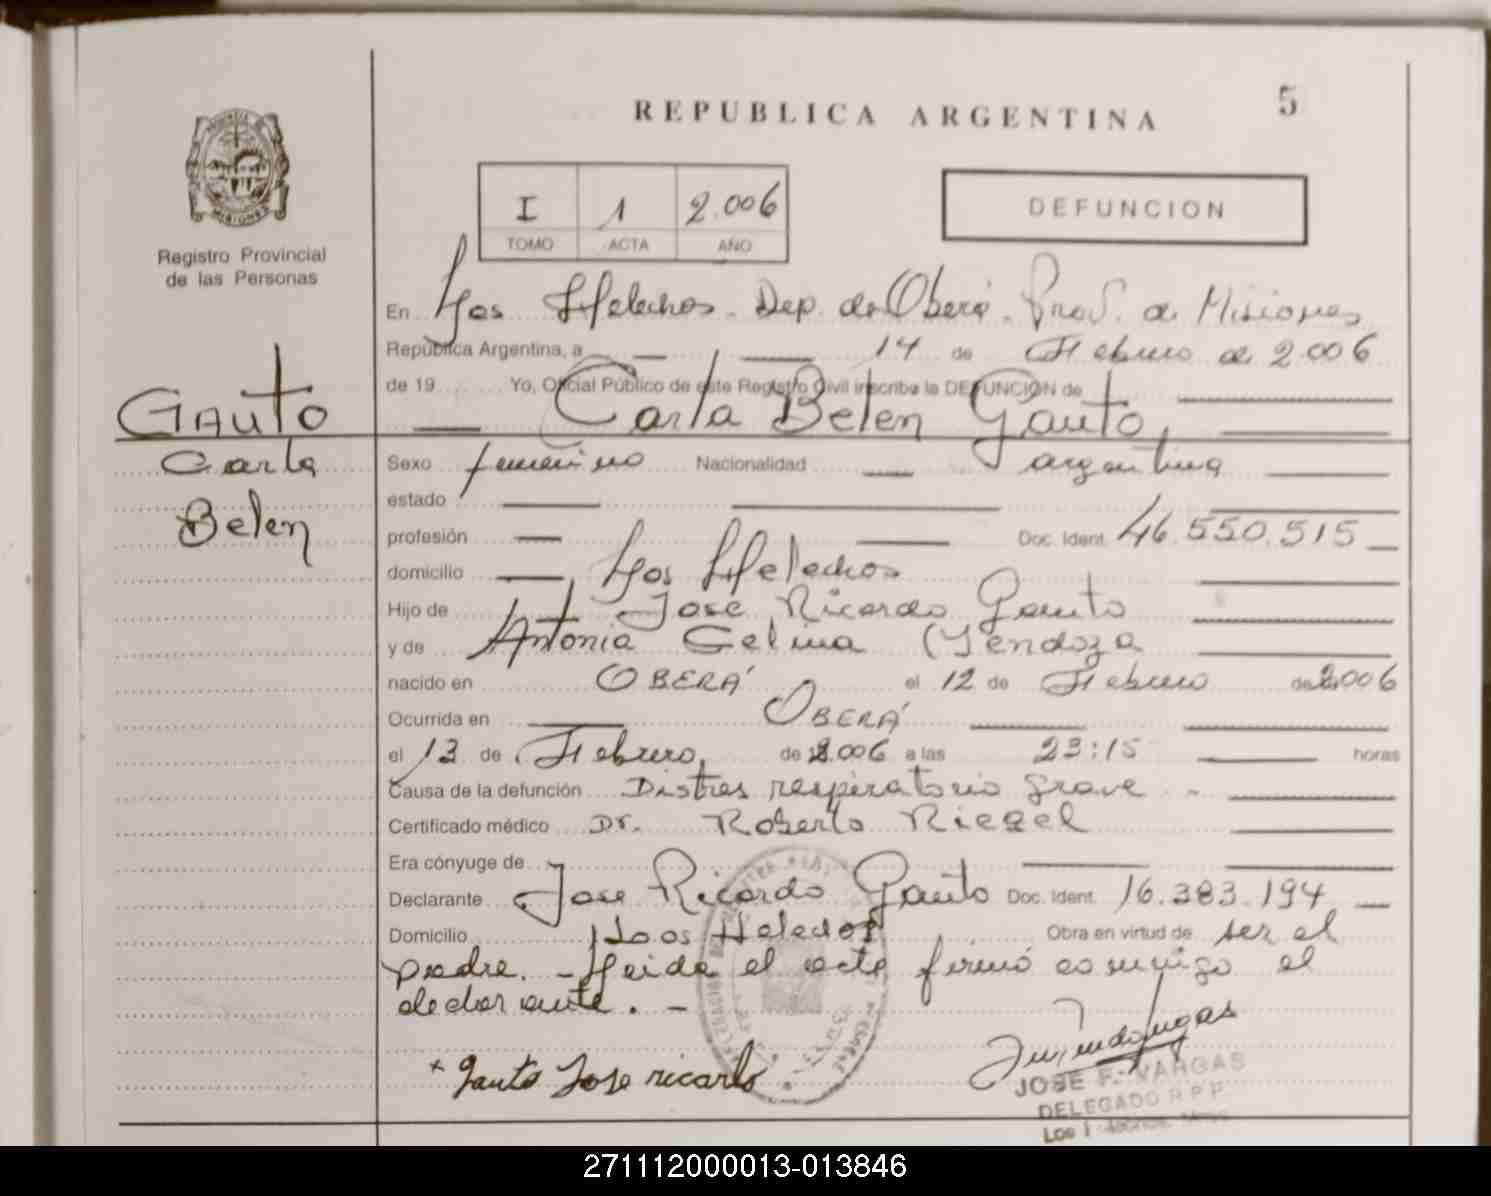 REPUBLICA ARGENTINA
5
PROVINCIA
MISIONES
Registro Provincial
de las Personas
I 1 2.006
TOMO ACTA AÑO
DEFUNCION
En Los Helechos - Dep. de Oberá - Prov. de Misiones
República Argentina, a 14 de Febrero de 2.006
de 19 Yo, Oficial Público de este Registro Civil inscribo la DEFUNCION de
Carla Belen Gauto,
GAUTO
Carla
Belen
Sexo femenino Nacionalidad argentina
estado
profesión Doc. Ident. 46.550.515
domicilio Los Helechos
Hijo de Jose Ricardo Gauto
y de Antonia Celina Mendoza
nacido en OBERÁ el 12 de Febrero de 2006
Ocurrida en OBERÁ
el 13 de Febrero, de 2.006 a las 23:15 horas
Causa de la defunción Distres respiratorio grave -
Certificado médico Dr. Roberto Riegel
Era cónyuge de
Declarante Jose Ricardo Gauto Doc. Ident. 16.383.194
Domicilio Los Helechos Obra en virtud de ser el
padre. - Leida el acta firmó conmigo el
declarante. -
* Gauto Jose ricardo
JOSE F. VARGAS
DELEGADO R P P
Los
271112000013-013846